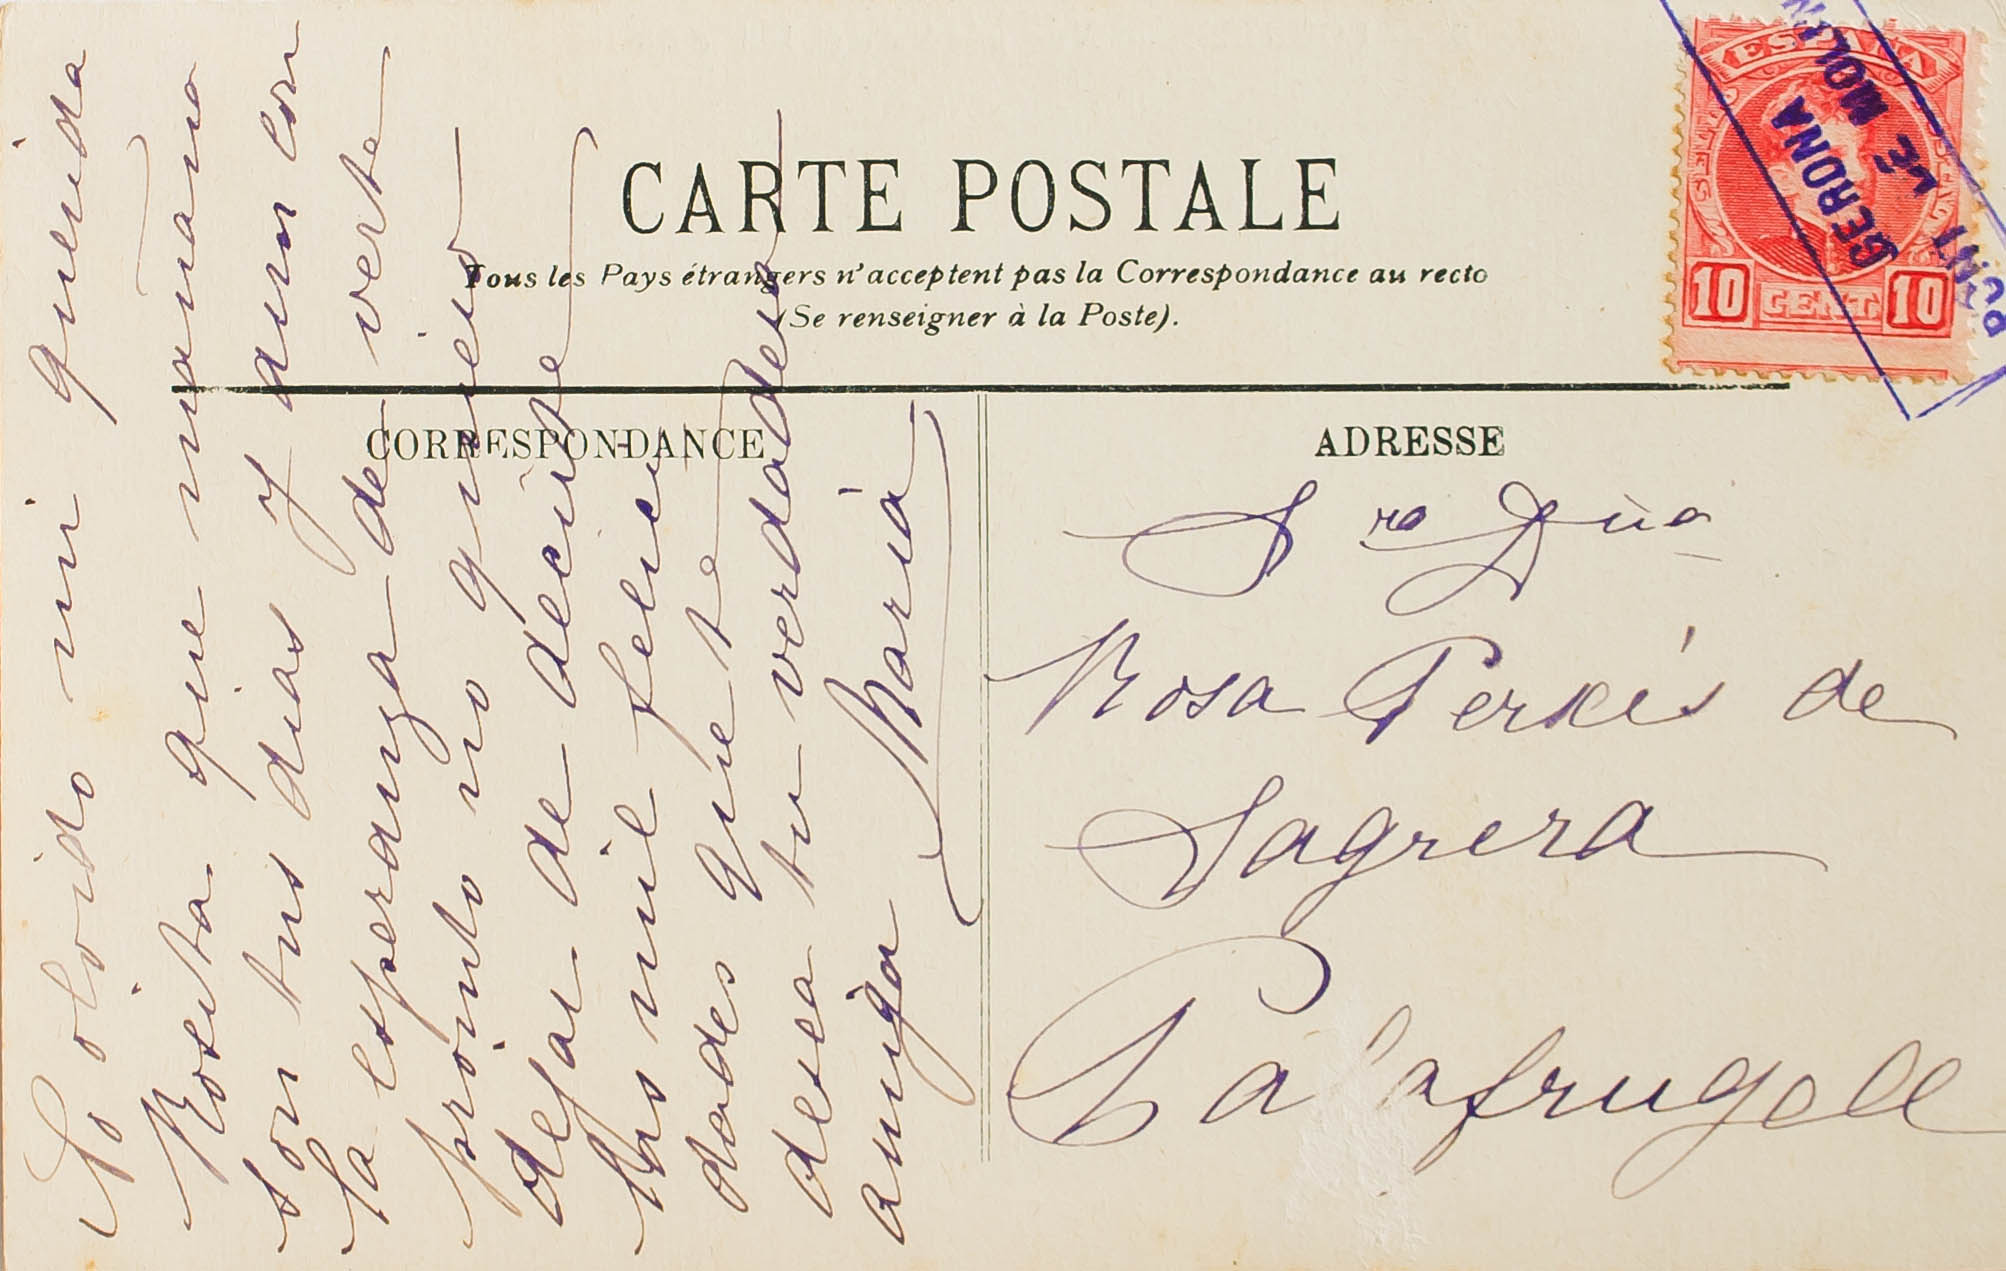 CARTE POSTALE
Tous les Pays étrangers n'acceptent pas la Correspondance au recto
(Se renseigner à la Poste).
ESPAÑA
10 CENT. 10
GERONA
LE MOLI
PONT
CORRESPONDANCE
No olvido mi querida
Rosita que mañana
son tus dias y aun con
la esperanza de verte
pronto no quiero
dejar de decirte
las mil felici
dades que te
desea tu verdadera
amiga Maria
ADRESSE
Sra Dña
Rosa Perxés de
Sagrera
Palafrugell